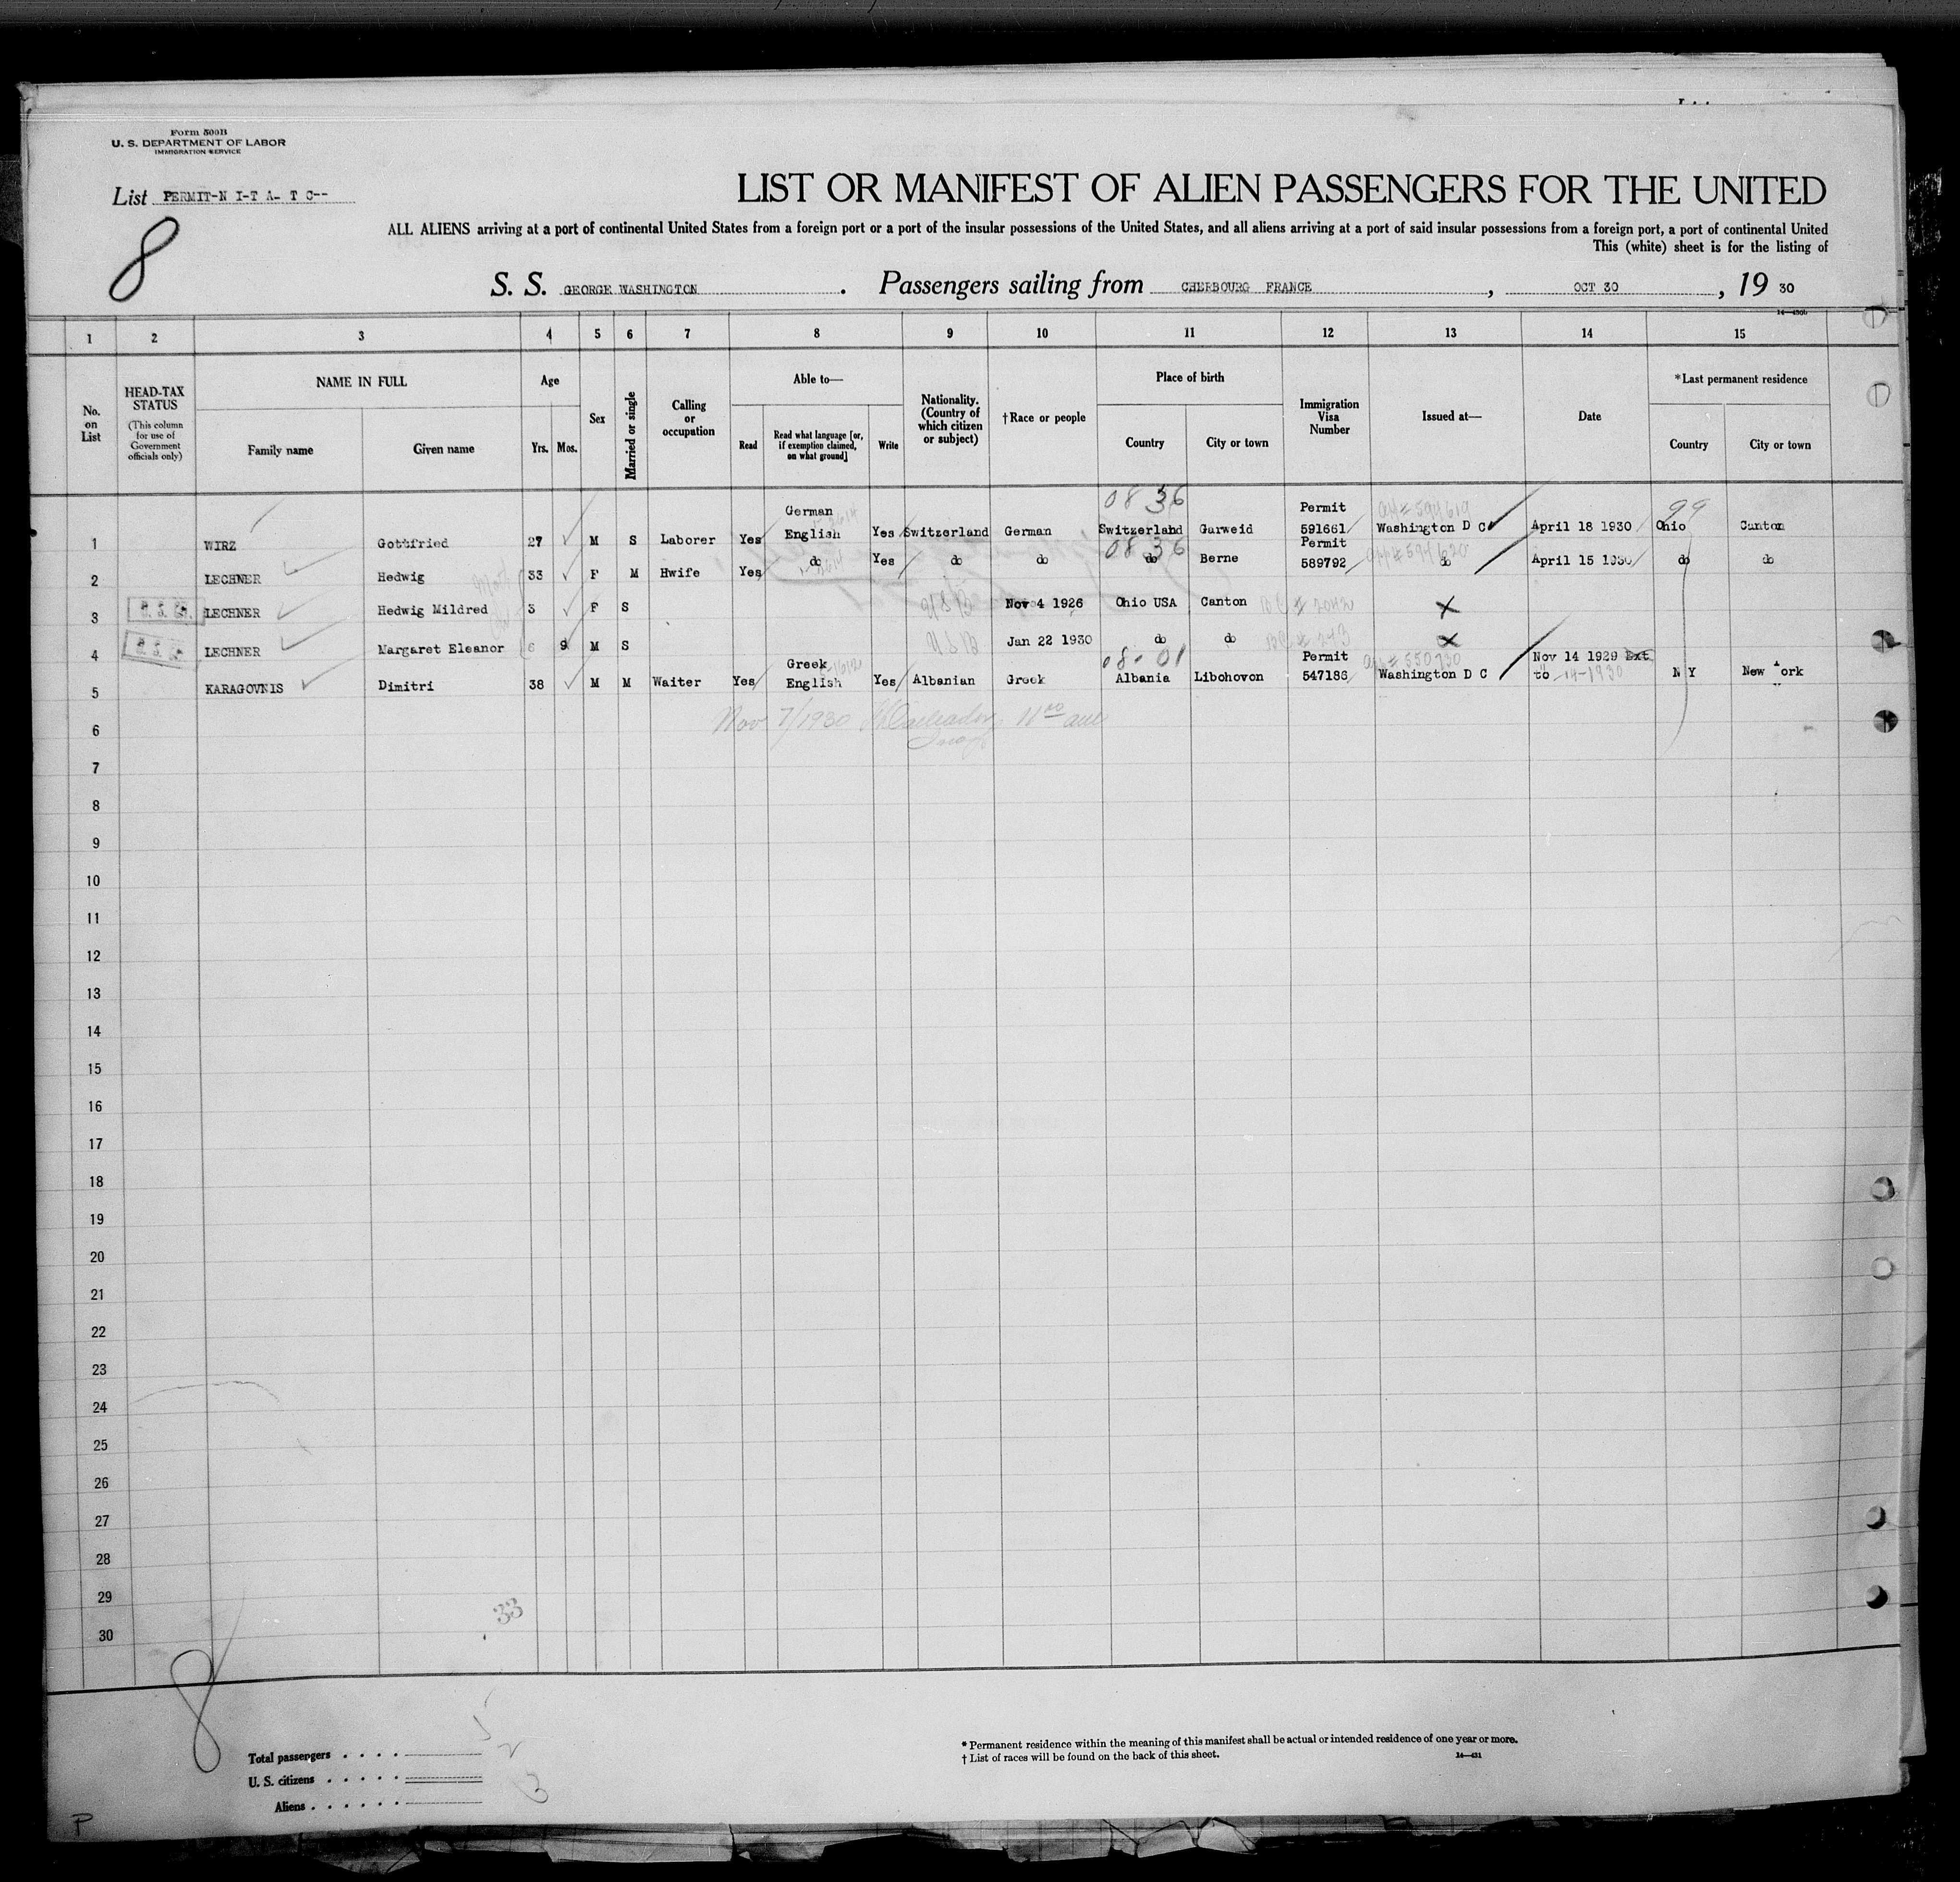 Form 500B
U. S. DEPARTMENT OF LABOR
IMMIGRATION SERVICE
List PERMIT-N I-T A- T C--
8
LIST OR MANIFEST OF ALIEN PASSENGERS FOR THE UNITED
ALL ALIENS arriving at a port of continental United States from a foreign port or a port of the insular possessions of the United States, and all aliens arriving at a port of said insular possessions from a foreign port, a port of continental United
This (white) sheet is for the listing of
S. S. GEORGE WASHINGTON. Passengers sailing from CHERBOURG FRANCE, OCT 30, 19 30
1 2 3 4 5 6 7 8 9 10 11 12 13 14 15
No. on List
HEAD-TAX STATUS
(This column for use of Government officials only)
NAME IN FULL
Family name Given name
Age
Yrs. Mos.
Sex
Married or single
Calling or occupation
Able to—
Read Read what language [or, if exemption claimed, on what ground] Write
Nationality. (Country of which citizen or subject)
†Race or people
Place of birth
Country City or town
Immigration Visa Number
Issued at—
Date
*Last permanent residence
Country City or town
08 36 99
German Permit
1 WIRZ Gottfried 27 M S Laborer Yes English Yes Switzerland German Switzerland Garweid 591661 Washington D C April 18 1930 Ohio Canton
08 36
Permit
2 LECHNER Hedwig 33 F M Hwife Yes do Yes do do do Berne 589792 do April 15 1930 do do
3 LECHNER Hedwig Mildred 3 F S USB Nov 4 1926 Ohio USA Canton X
4 LECHNER Margaret Eleanor 9 M S USB Jan 22 1930 do do X
08-01
Greek Permit Nov 14 1929 Ext
5 KARAGOVNIS Dimitri 38 M M Waiter Yes English Yes Albanian Greek Albania Libohovon 547186 Washington D C to 14-1930 N Y New York
Nov 7/1930
6
7
8
9
10
11
12
13
14
15
16
17
18
19
20
21
22
23
24
25
26
27
28
29
30
33
8
Total passengers 5
U. S. citizens 2
Aliens 3
* Permanent residence within the meaning of this manifest shall be actual or intended residence of one year or more.
† List of races will be found on the back of this sheet.
14—431
P